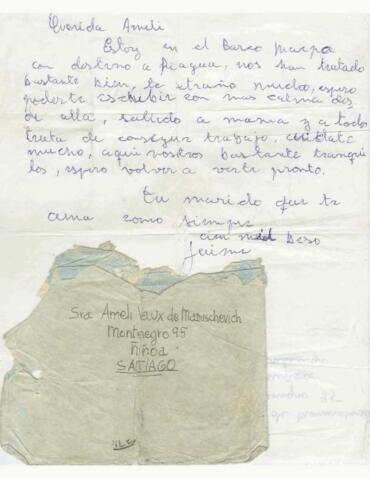 Querida Ameli
Estoy en el Barco Maipo
con destino a Pisagua, nos han tratado
bastante bien, te extraño mucho, espero
poderte escribir con mas calma des
de alla, saludo a mama y a todos
trata de conseguir trabajo, cuidate
mucho, aqui nosotros bastante tranqui
los, espero volver a verte pronto.
Tu marido que te
ama como siempre
con mil beso
Jaime
Sra Ameli de Maruschevich
Montnegro 95
Ñiñoa
SATIAGO